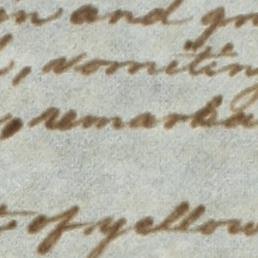 and
, vomiting
, remarka
of yellow